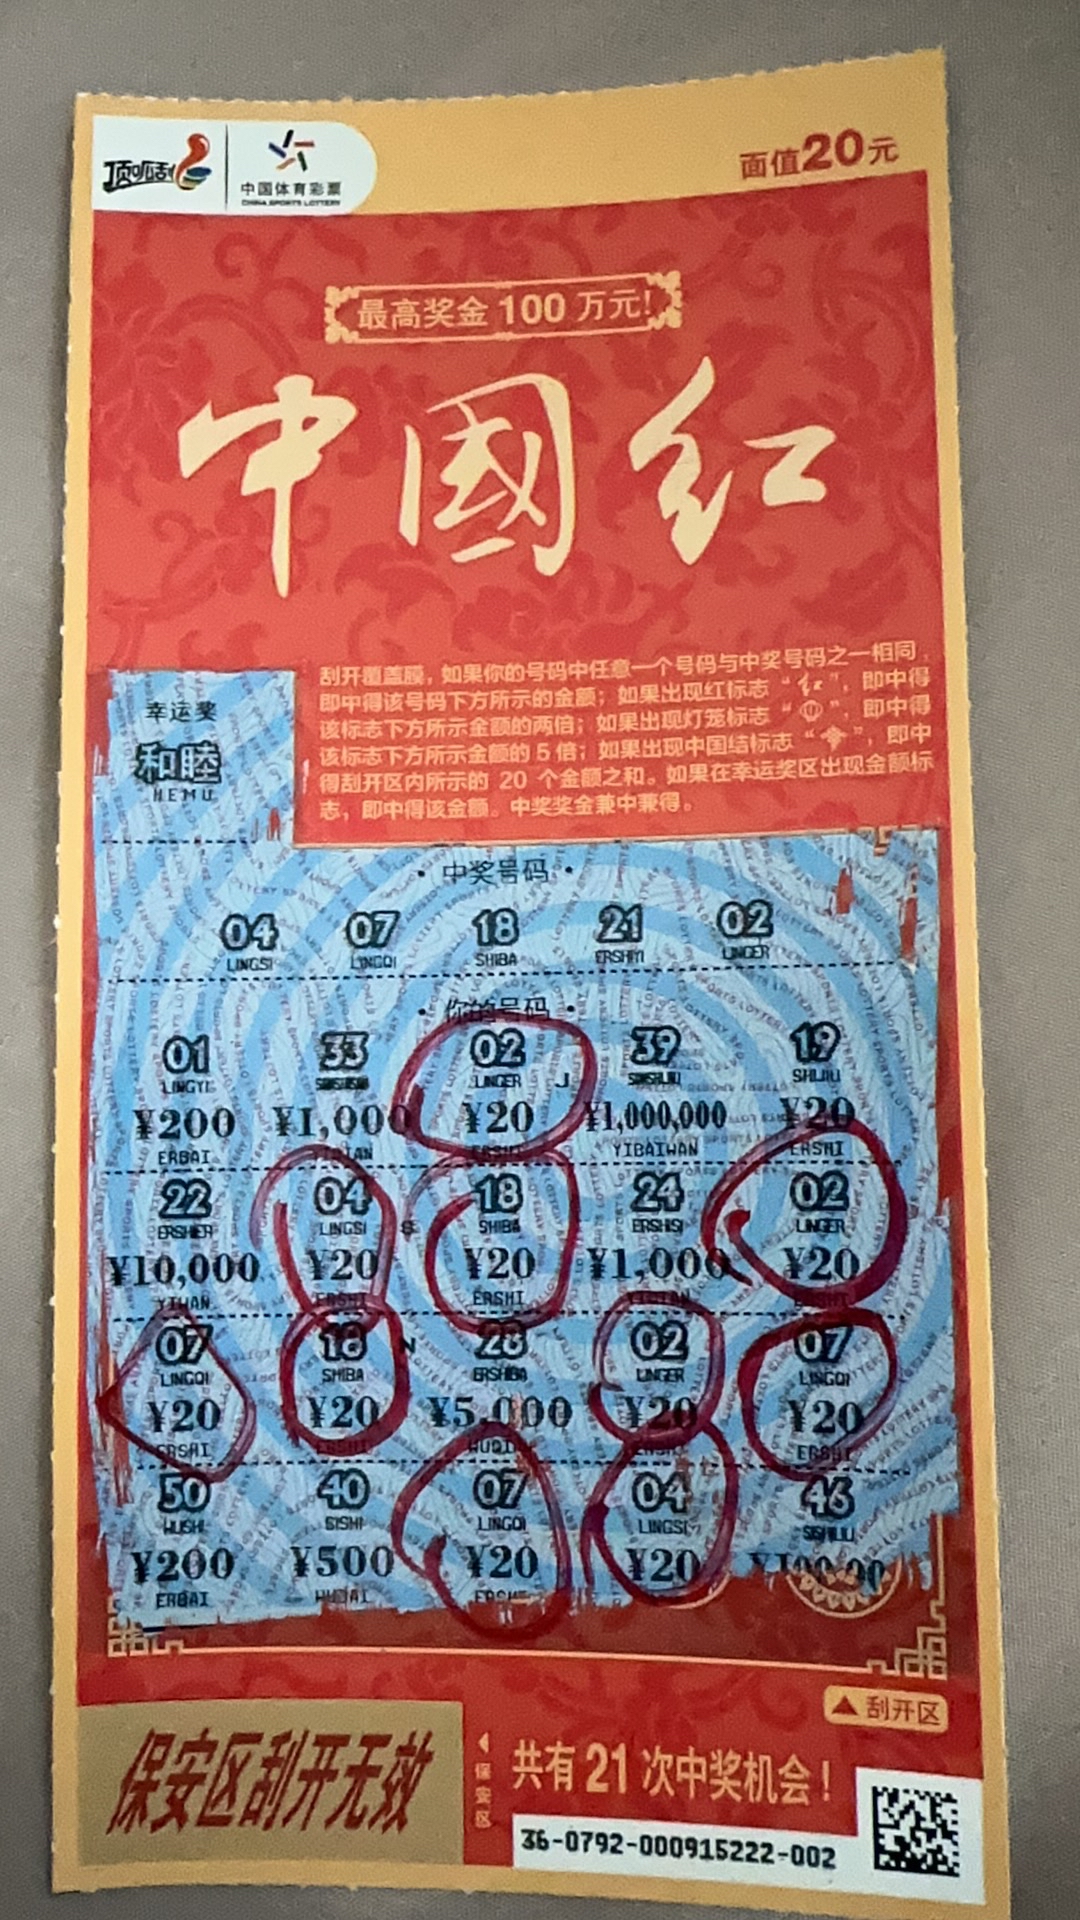 顶呱刮
中国体育彩票
CHINA SPORTS LOTTERY
面值20元
最高奖金 100 万元!
中國红
刮开覆盖膜，如果你的号码中任意一个号码与中奖号码之一相同，
即中得该号码下方所示的金额；如果出现红标志“红”，即中得
该标志下方所示金额的两倍；如果出现灯笼标志“”，即中得
该标志下方所示金额的 5 倍；如果出现中国结标志“”，即中
得刮开区内所示的 20 个金额之和。如果在幸运奖区出现金额标
志，即中得该金额。中奖奖金兼中兼得。
幸运奖
和睦
HEMU
· 中奖号码 ·
04 07 18 21 02
LINGSI LINGQI SHIBA ERSHIYI LINGER
· 你的号码 ·
01 33 02 39 19
LINGYI LINGER SHIJIU
¥200 ¥1,000 ¥20 ¥1,000,000 ¥20
ERBAI YIQIAN ERSHI YIBAIWAN ERSHI
22 04 18 24 02
ERSHIER LINGSI SHIBA ERSHISI LINGER
¥10,000 ¥20 ¥20 ¥1,000 ¥20
YIWAN ERSHI ERSHI YIQIAN ERSHI
07 18 28 02 07
LINGQI SHIBA ERSHIBA LINGER LINGQI
¥20 ¥20 ¥5,000 ¥20 ¥20
ERSHI ERSHI WUQIAN ERSHI ERSHI
50 40 07 04 46
WUSHI SISHI LINGQI LINGSI SISHILIU
¥200 ¥500 ¥20 ¥20
ERBAI WUBAI ERSHI
刮开区
保安区刮开无效
保安区
共有 21 次中奖机会！
36-0792-000915222-002